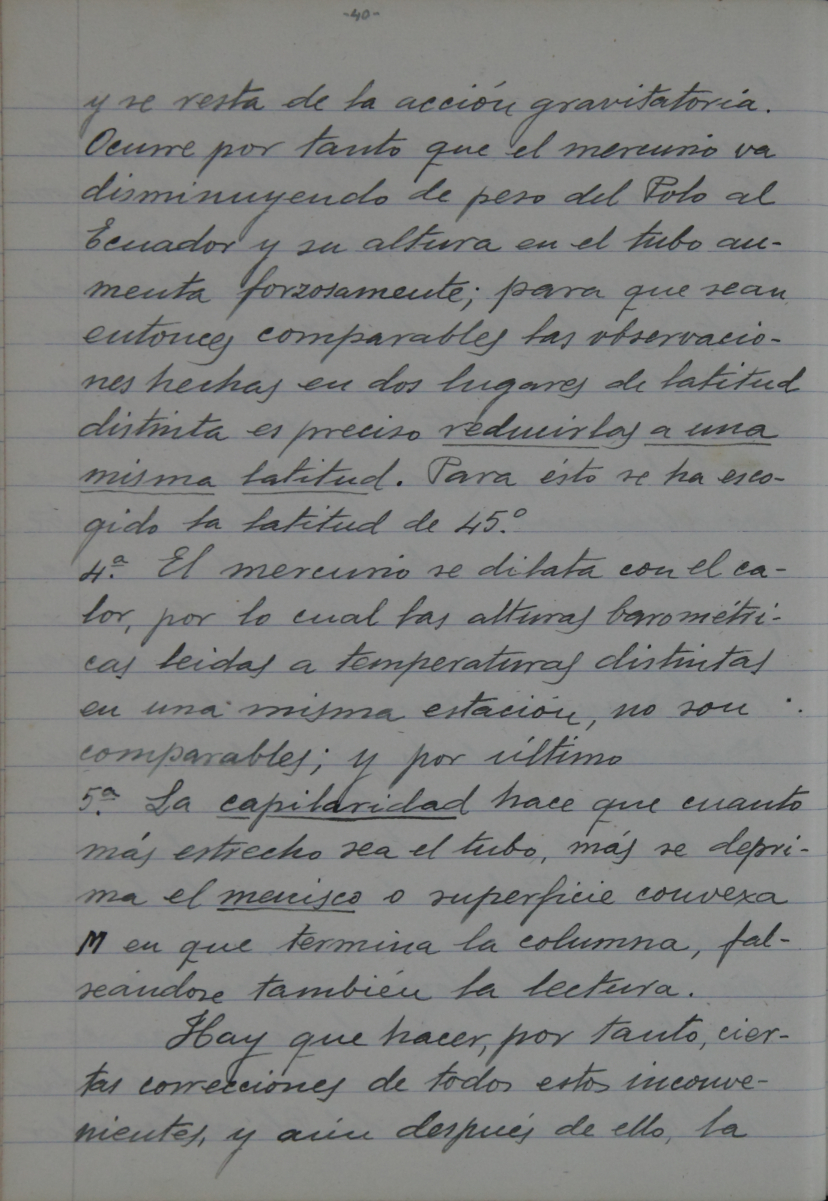 -40-
y se resta de la acción gravitatoria.
Ocurre por tanto que el mercurio va
disminuyendo de peso del Polo al
Ecuador y su altura en el tubo au-
menta forzosamente; para que sean
entonces comparables las observacio-
nes hechas en dos lugares de latitud
distinta es preciso reducirlas a una
misma latitud. Para ésto se ha esco-
gido la latitud de 45.º
4.ª El mercurio se dilata con el ca-
lor, por lo cual las alturas barométri-
cas leidas a temperaturas distintas
en una misma estación, no son
comparables; y por último
5.ª La capilaridad hace que cuanto
más estrecho sea el tubo, más se depri-
ma el menisco o superficie convexa
M en que termina la columna, fal-
seándose también la lectura.
Hay que hacer, por tanto, cier-
tas correcciones de todos estos inconve-
nientes, y aún después de ello, la